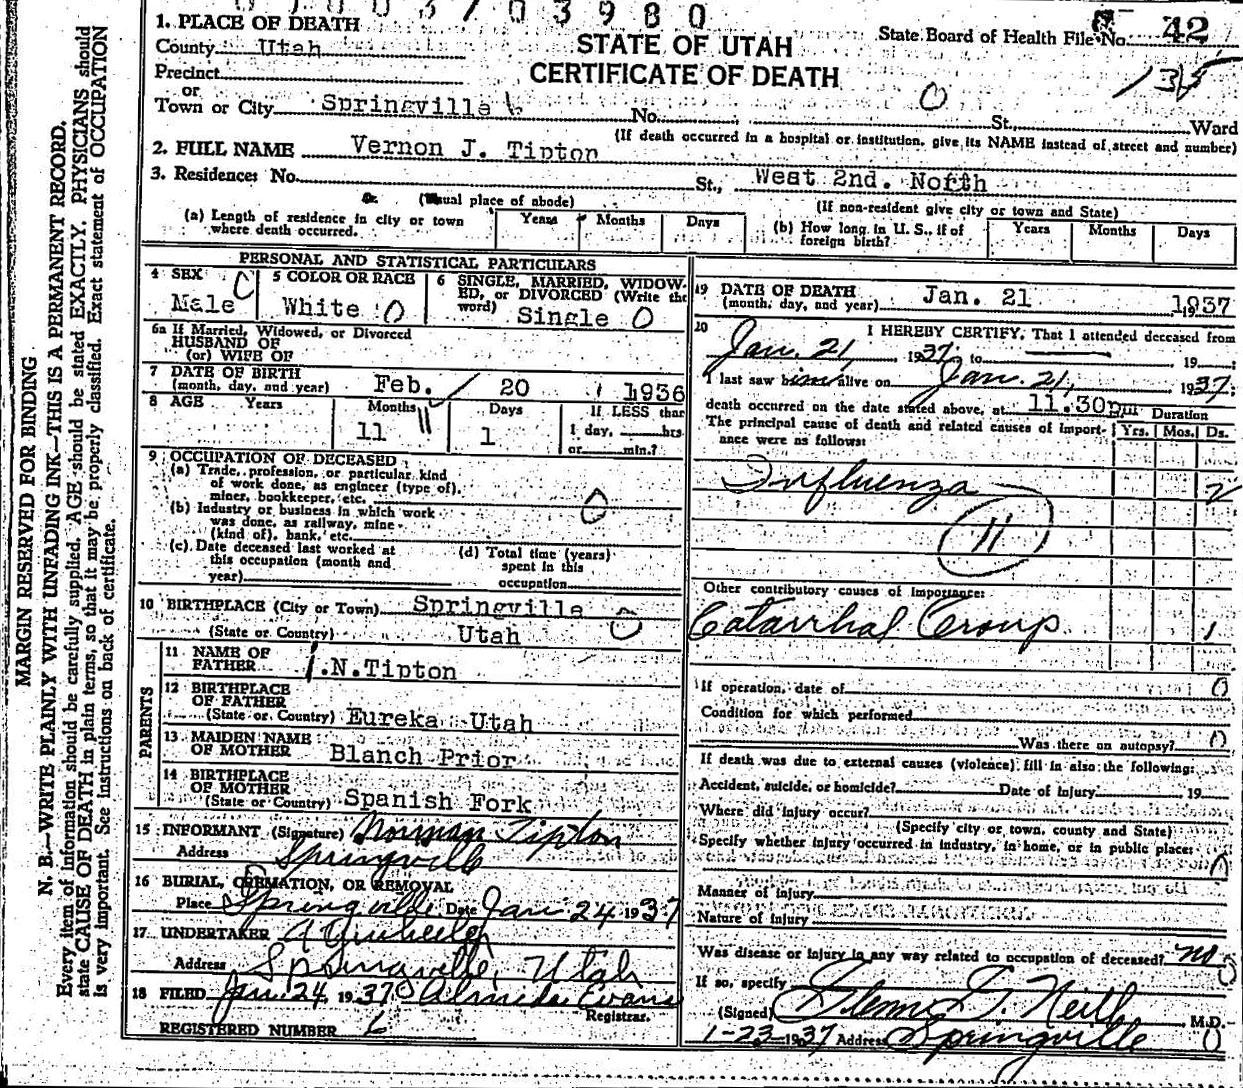 003703980
1. PLACE OF DEATH
County Utah
STATE OF UTAH
State Board of Health File No. 42
Precinct
CERTIFICATE OF DEATH
or
Town or City Springville
No. St., Ward
(If death occurred in a hospital or institution, give its NAME instead of street and number)
2. FULL NAME Vernon J. Tipton
3. Residence: No. St., West 2nd. North
(Usual place of abode)
(If non-resident give city or town and State)
(a) Length of residence in city or town where death occurred. Years Months Days
(b) How long in U. S., if of foreign birth? Years Months Days
PERSONAL AND STATISTICAL PARTICULARS
4 SEX
Male
5 COLOR OR RACE
White 0
6 SINGLE, MARRIED, WIDOW-
ED, or DIVORCED (Write the
word) Single 0
6a If Married, Widowed, or Divorced
HUSBAND OF
(or) WIFE OF
7 DATE OF BIRTH
(month, day, and year) Feb. 20 1936
8 AGE Years Months Days If LESS than
11 1 1 day, hrs
or min.?
9 OCCUPATION OF DECEASED
(a) Trade, profession, or particular kind
of work done, as engineer (type of),
miner, bookkeeper, etc.
(b) Industry or business in which work
was done, as railway, mine
(kind of), bank, etc.
(c) Date deceased last worked at
this occupation (month and
year)
(d) Total time (years)
spent in this
occupation
10 BIRTHPLACE (City or Town) Springville
(State or Country) Utah
PARENTS
11 NAME OF
FATHER .N.Tipton
12 BIRTHPLACE
OF FATHER
(State or Country) Eureka Utah
13 MAIDEN NAME
OF MOTHER Blanch Prior
14 BIRTHPLACE
OF MOTHER
(State or Country) Spanish Fork
15 INFORMANT (Signature) Norman Tipton
Address Springville
16 BURIAL, CREMATION, OR REMOVAL
Place Springville Date Jan 24 1937
17 UNDERTAKER
Address Springville, Utah
18 FILED Jan 24, 1937 Almeda Evans
Registrar.
REGISTERED NUMBER 6
19 DATE OF DEATH
(month, day, and year) Jan. 21 1937
20 I HEREBY CERTIFY, That I attended deceased from
Jan. 21, 1937, to 19
I last saw him alive on Jan. 21, 1937;
death occurred on the date stated above, at 11.30pm Duration
The principal cause of death and related causes of import-
ance were as follows: Yrs. Mos. Ds.
Influenza 2
11
Other contributory causes of importance:
Catarrhal Croup 1
If operation, date of 0
Condition for which performed
Was there an autopsy? 0
If death was due to external causes (violence), fill in also the following:
Accident, suicide, or homicide? Date of injury 19
Where did injury occur?
(Specify city or town, county and State)
Specify whether injury occurred in industry, in home, or in public place:
Manner of injury
Nature of injury
Was disease or injury in any way related to occupation of deceased? no
If so, specify
(Signed) M.D.
1-23-1937 Address Springville
MARGIN RESERVED FOR BINDING
N. B.—WRITE PLAINLY WITH UNFADING INK—THIS IS A PERMANENT RECORD.
Every item of information should be carefully supplied. AGE should be stated EXACTLY. PHYSICIANS should
state CAUSE OF DEATH in plain terms, so that it may be properly classified. Exact statement of OCCUPATION
is very important. See Instructions on back of certificate.